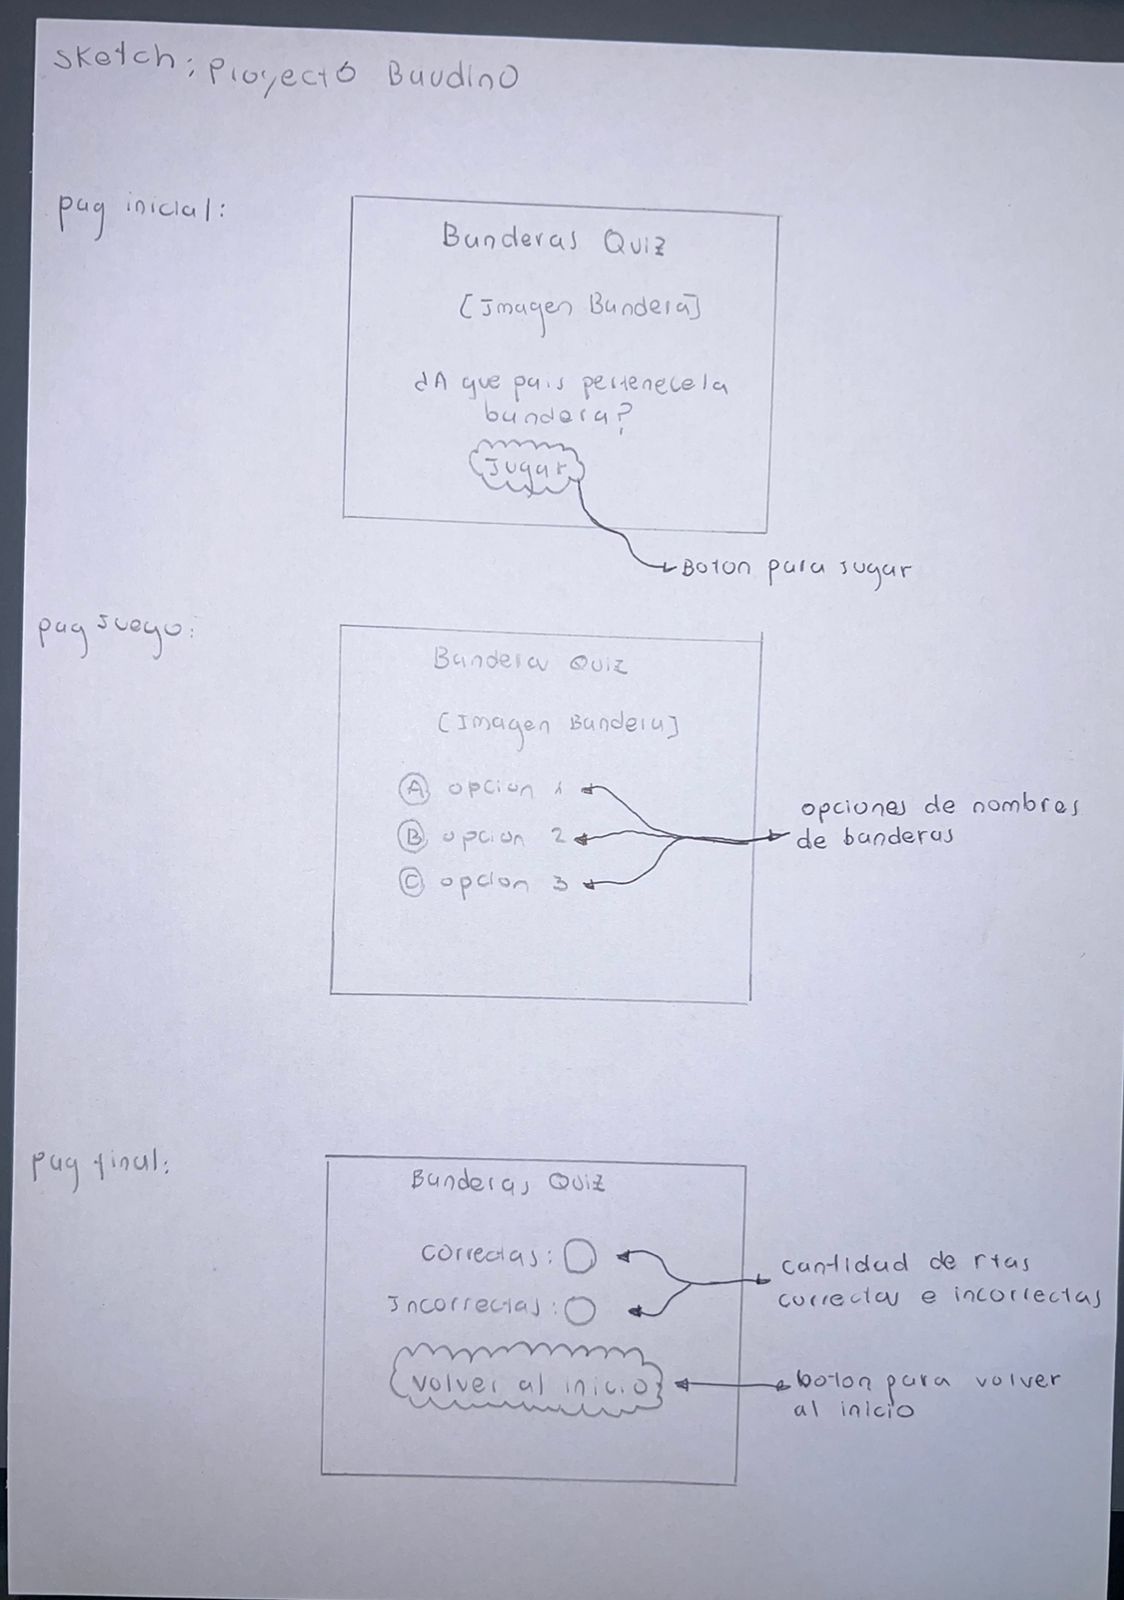 sketch: Proyecto Baudino
pag inicial:
Banderas Quiz
[Imagen Bandera]
¿A que pais pertenece la
bandera?
Jugar
Boton para jugar
pag Juego:
Banderas Quiz
[Imagen Bandera]
A opcion 1
B opcion 2
C opcion 3
opciones de nombres
de banderas
pag final:
Banderas Quiz
correctas:
Incorrectas:
cantidad de rtas
correctas e incorrectas
volver al inicio
boton para volver
al inicio